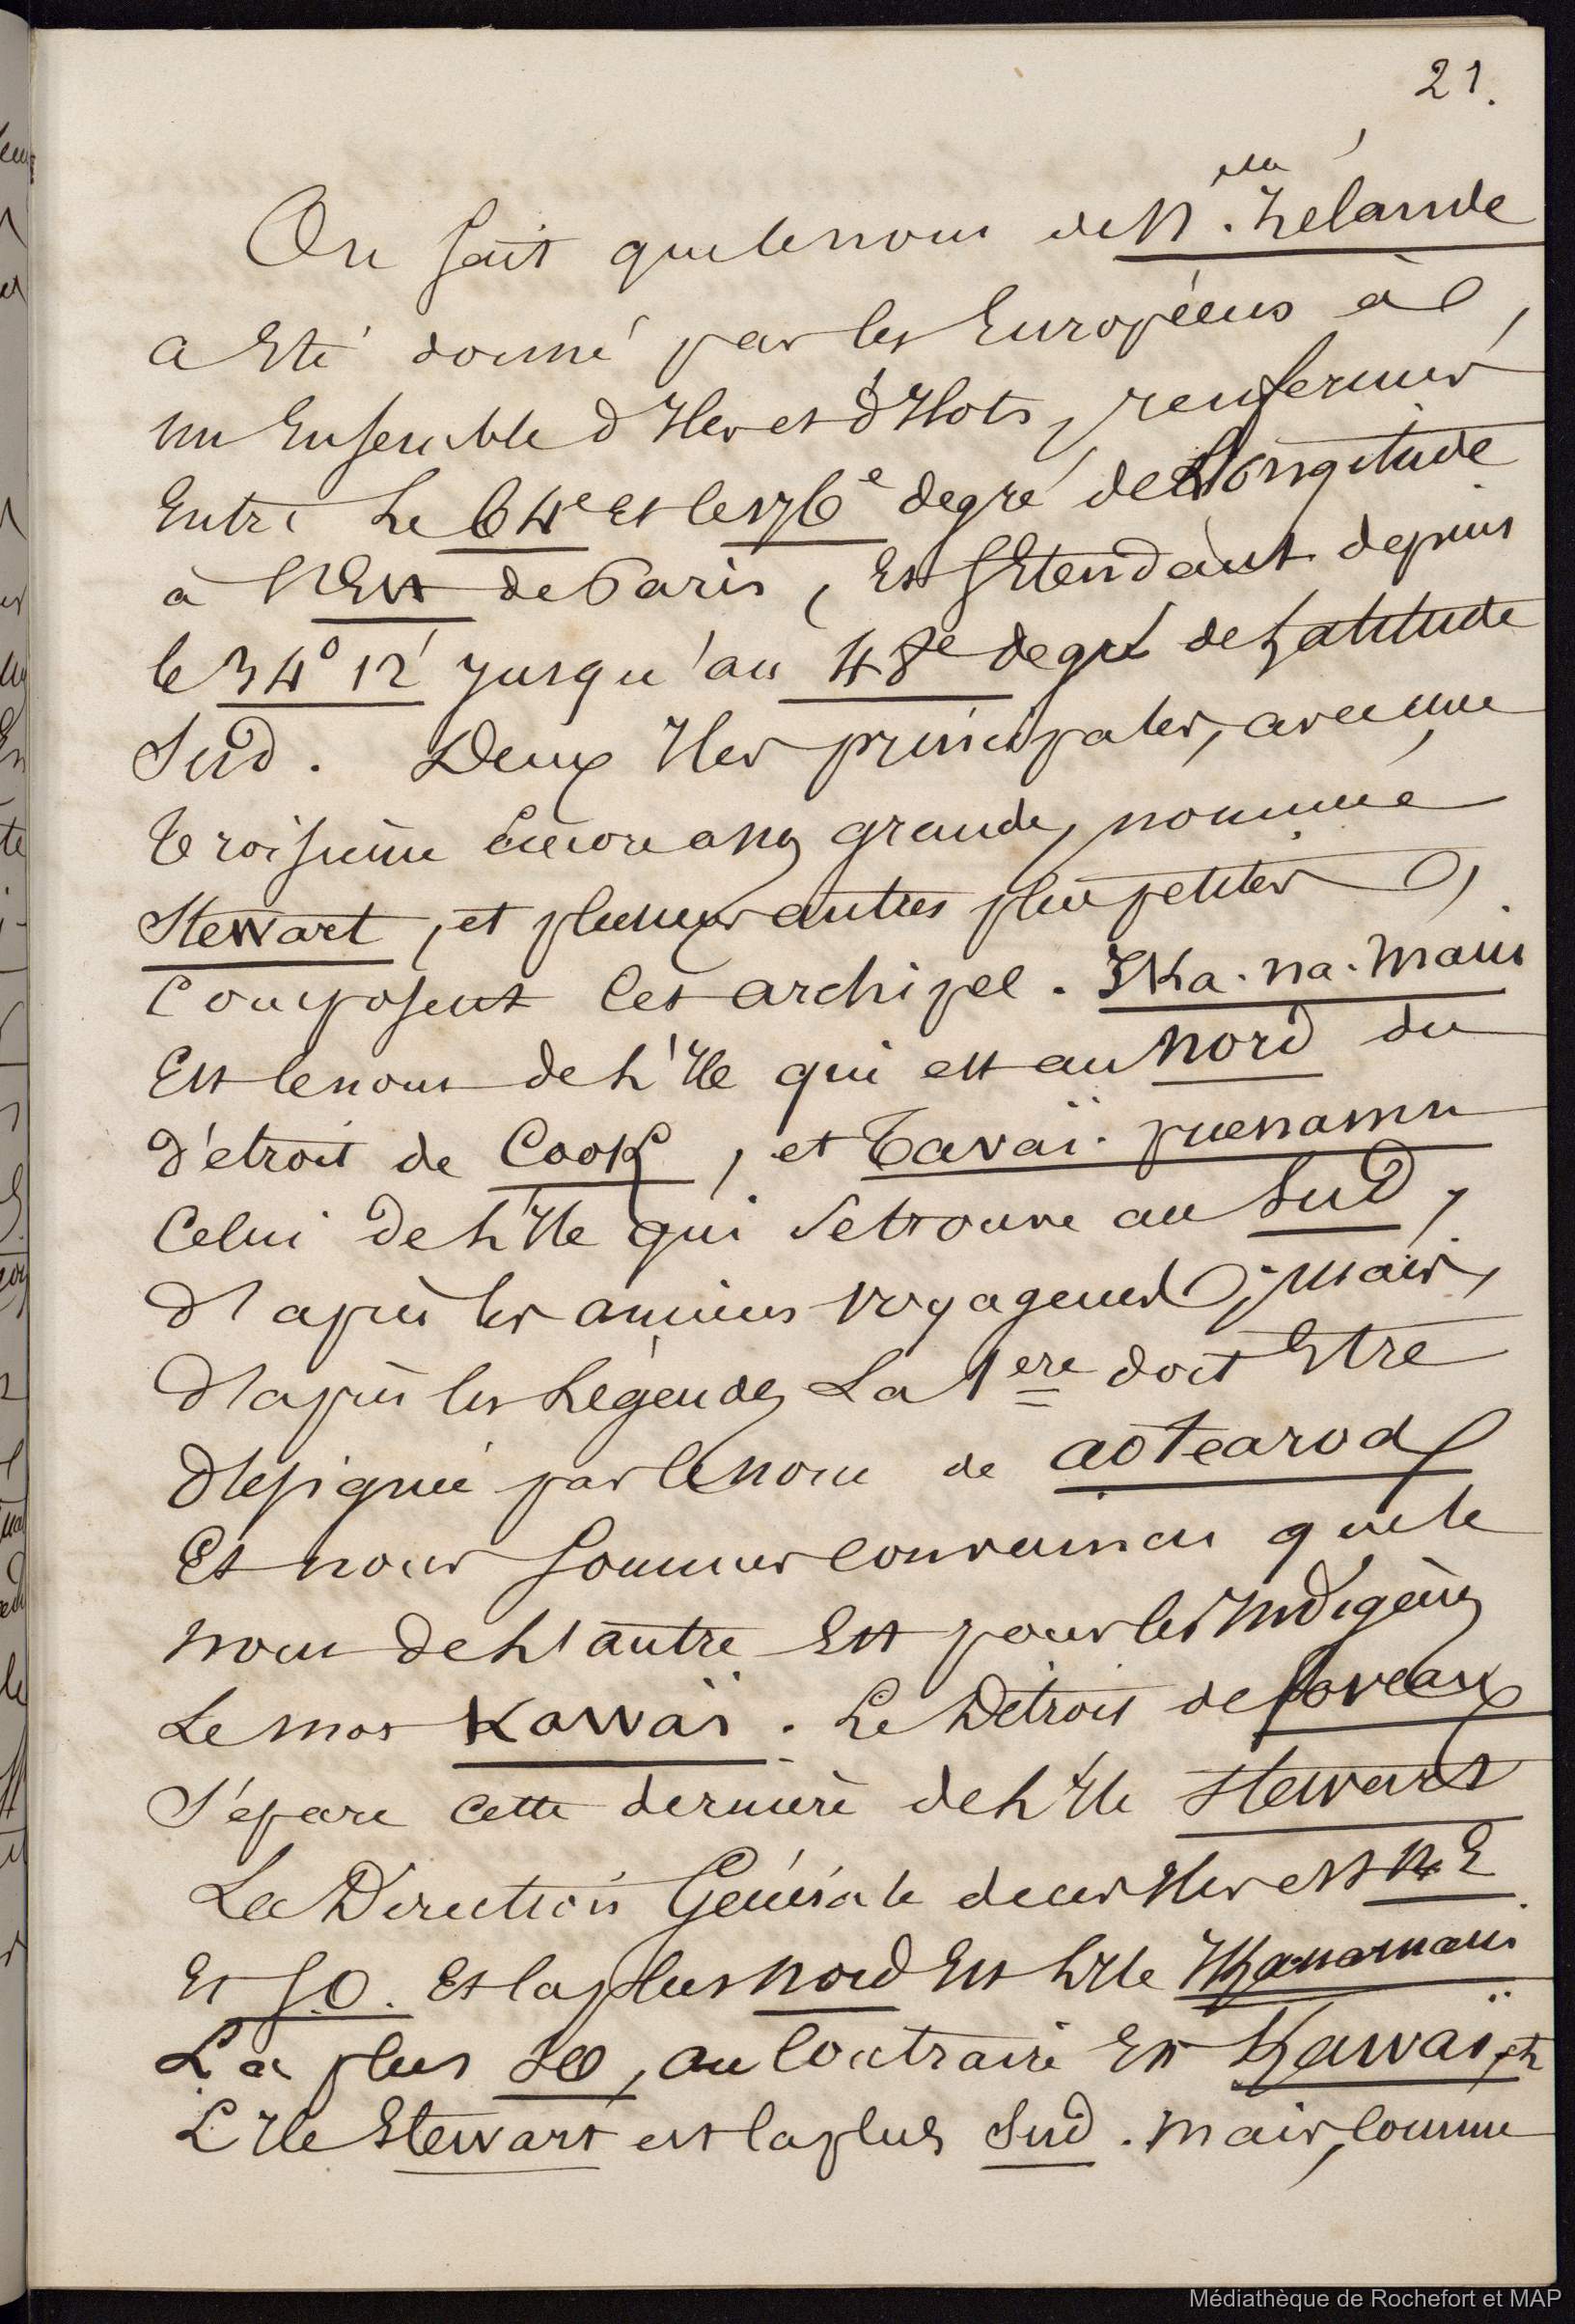 21.
On sait que le nom de N.lle Zélande
a Eté donné par les Européens à
un Ensemble d'Iles et d'Ilots, renfermés
Entre Le 64e et le 176e degré de Longitude
à l'Est de Paris, Et s'Etendant depuis
le 34° 12' jusqu'au 48e degré de Latitude
Sud. Deux Iles principales, avec une
troisième encore assez grande, nommée
Stewart, et plusieurs autres plus petites,
Composent cet archipel. Ika-na-Mawi
Est le nom de L'Ile qui est au Nord du
Détroit de Cook, et Tavaï-puenamu
Celui de L'Ile qui se trouve au Sud,
d'après les anciens voyageurs; Mais,
d'après les Légendes La 1ere doit Etre
désignée par le nom de aotearoa
Et nous sommes convaincus que le
nom de L'autre Est pour les Indigènes
Le mot Kawaï. Le Détroit de Foveaux
Sépare cette dernière de L'Ile Stewart
La Direction Générale de ces Iles est N.E
Et S.O. Et la plus Nord Est L'Ile Ika-na-mawi
La plus SO, au Contraire Est Kawaï, et
L'Ile Stewart est la plus Sud. Mais, comme
Médiathèque de Rochefort et MAP